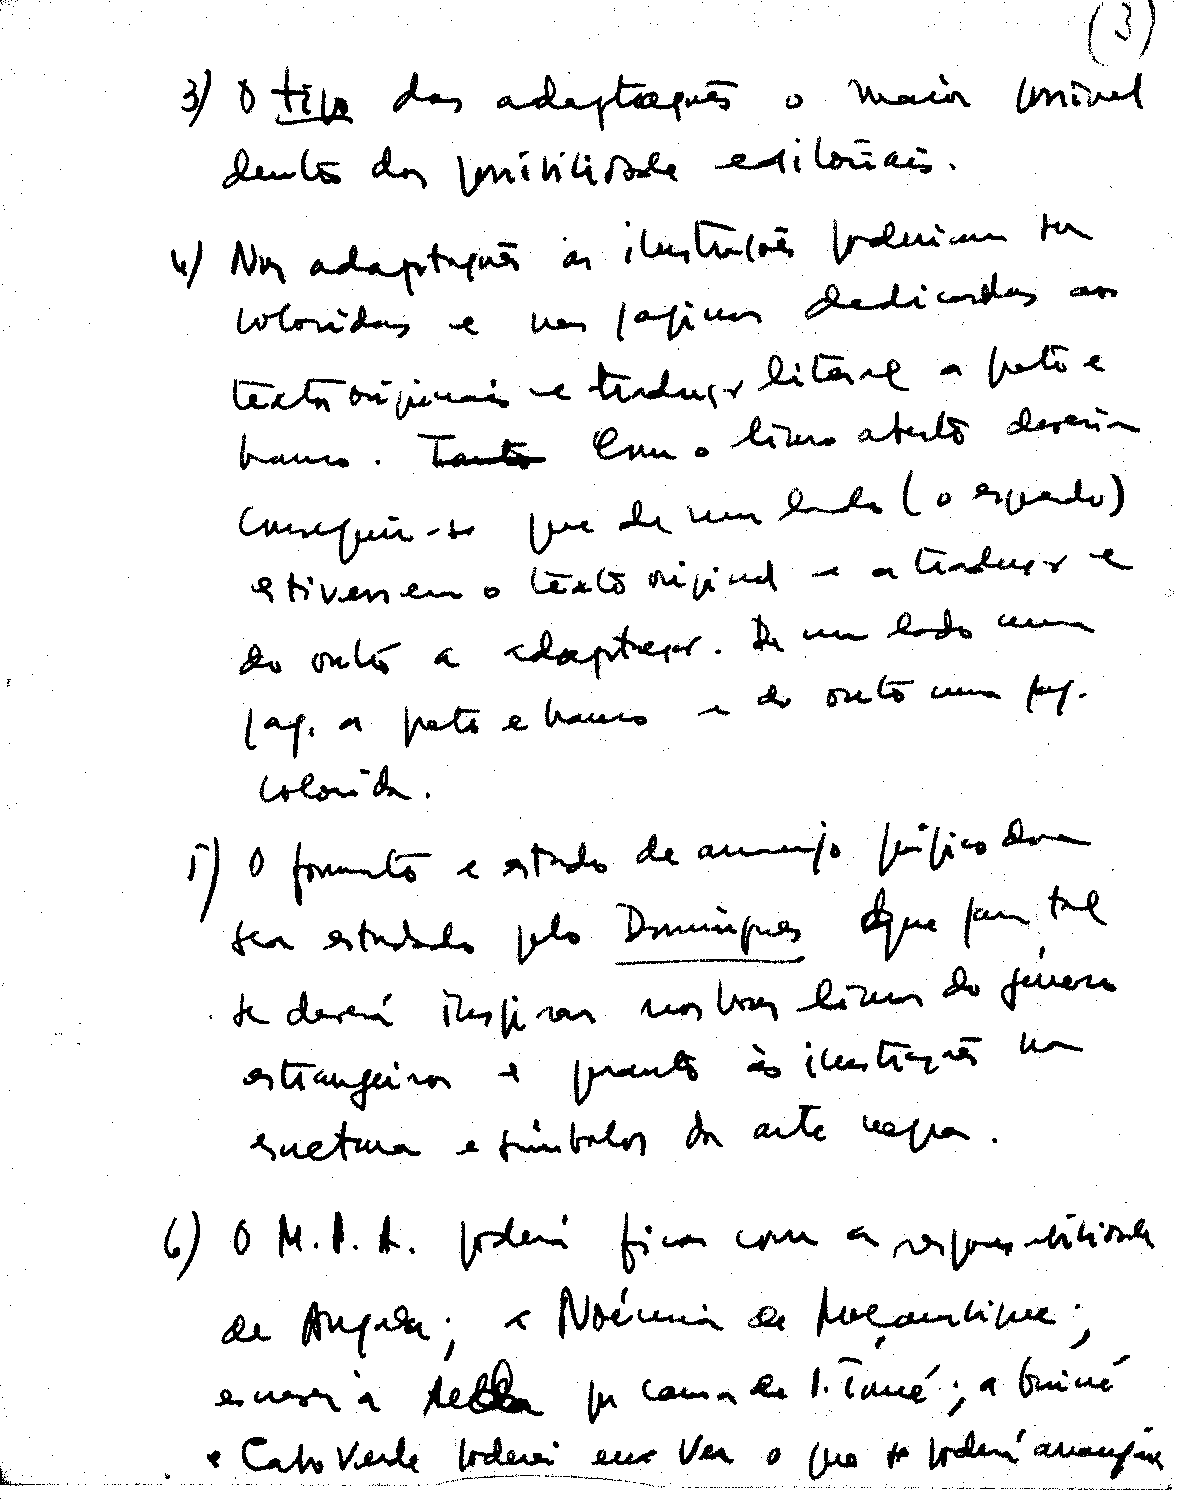 (3)
3) O tipo das adaptações o maior possivel
dentro das possibilidade editoriais.
4) Nas adaptações as ilustrações poderiam ser
coloridas e nas paginas dedicadas aos
textos originais e tradução literal a preto e
branco. Tanto Com o livro aberto deveria
conseguir-se que de um lado (o esquerdo)
estivessem o texto original e a tradução e
do outro a adaptação. De um lado uma
pag. a preto e branco e do outro uma pag.
colorida.
5) O formato e estudo de arranjo gráfico deve
ser estudado pelo Domingues que para tal
se deverá inspirar nos bons livros do género
estrangeiros e quanto às ilustrações na
escultura e simbolos da arte negra.
6) O M. P. A. poderá ficar com a responsabilidade
de Angola; a Noémia de Moçambique;
escrever à por causa de S. Tomé; a Guiné
e Cabo Verde poderei eu ver o que se poderá arranjar